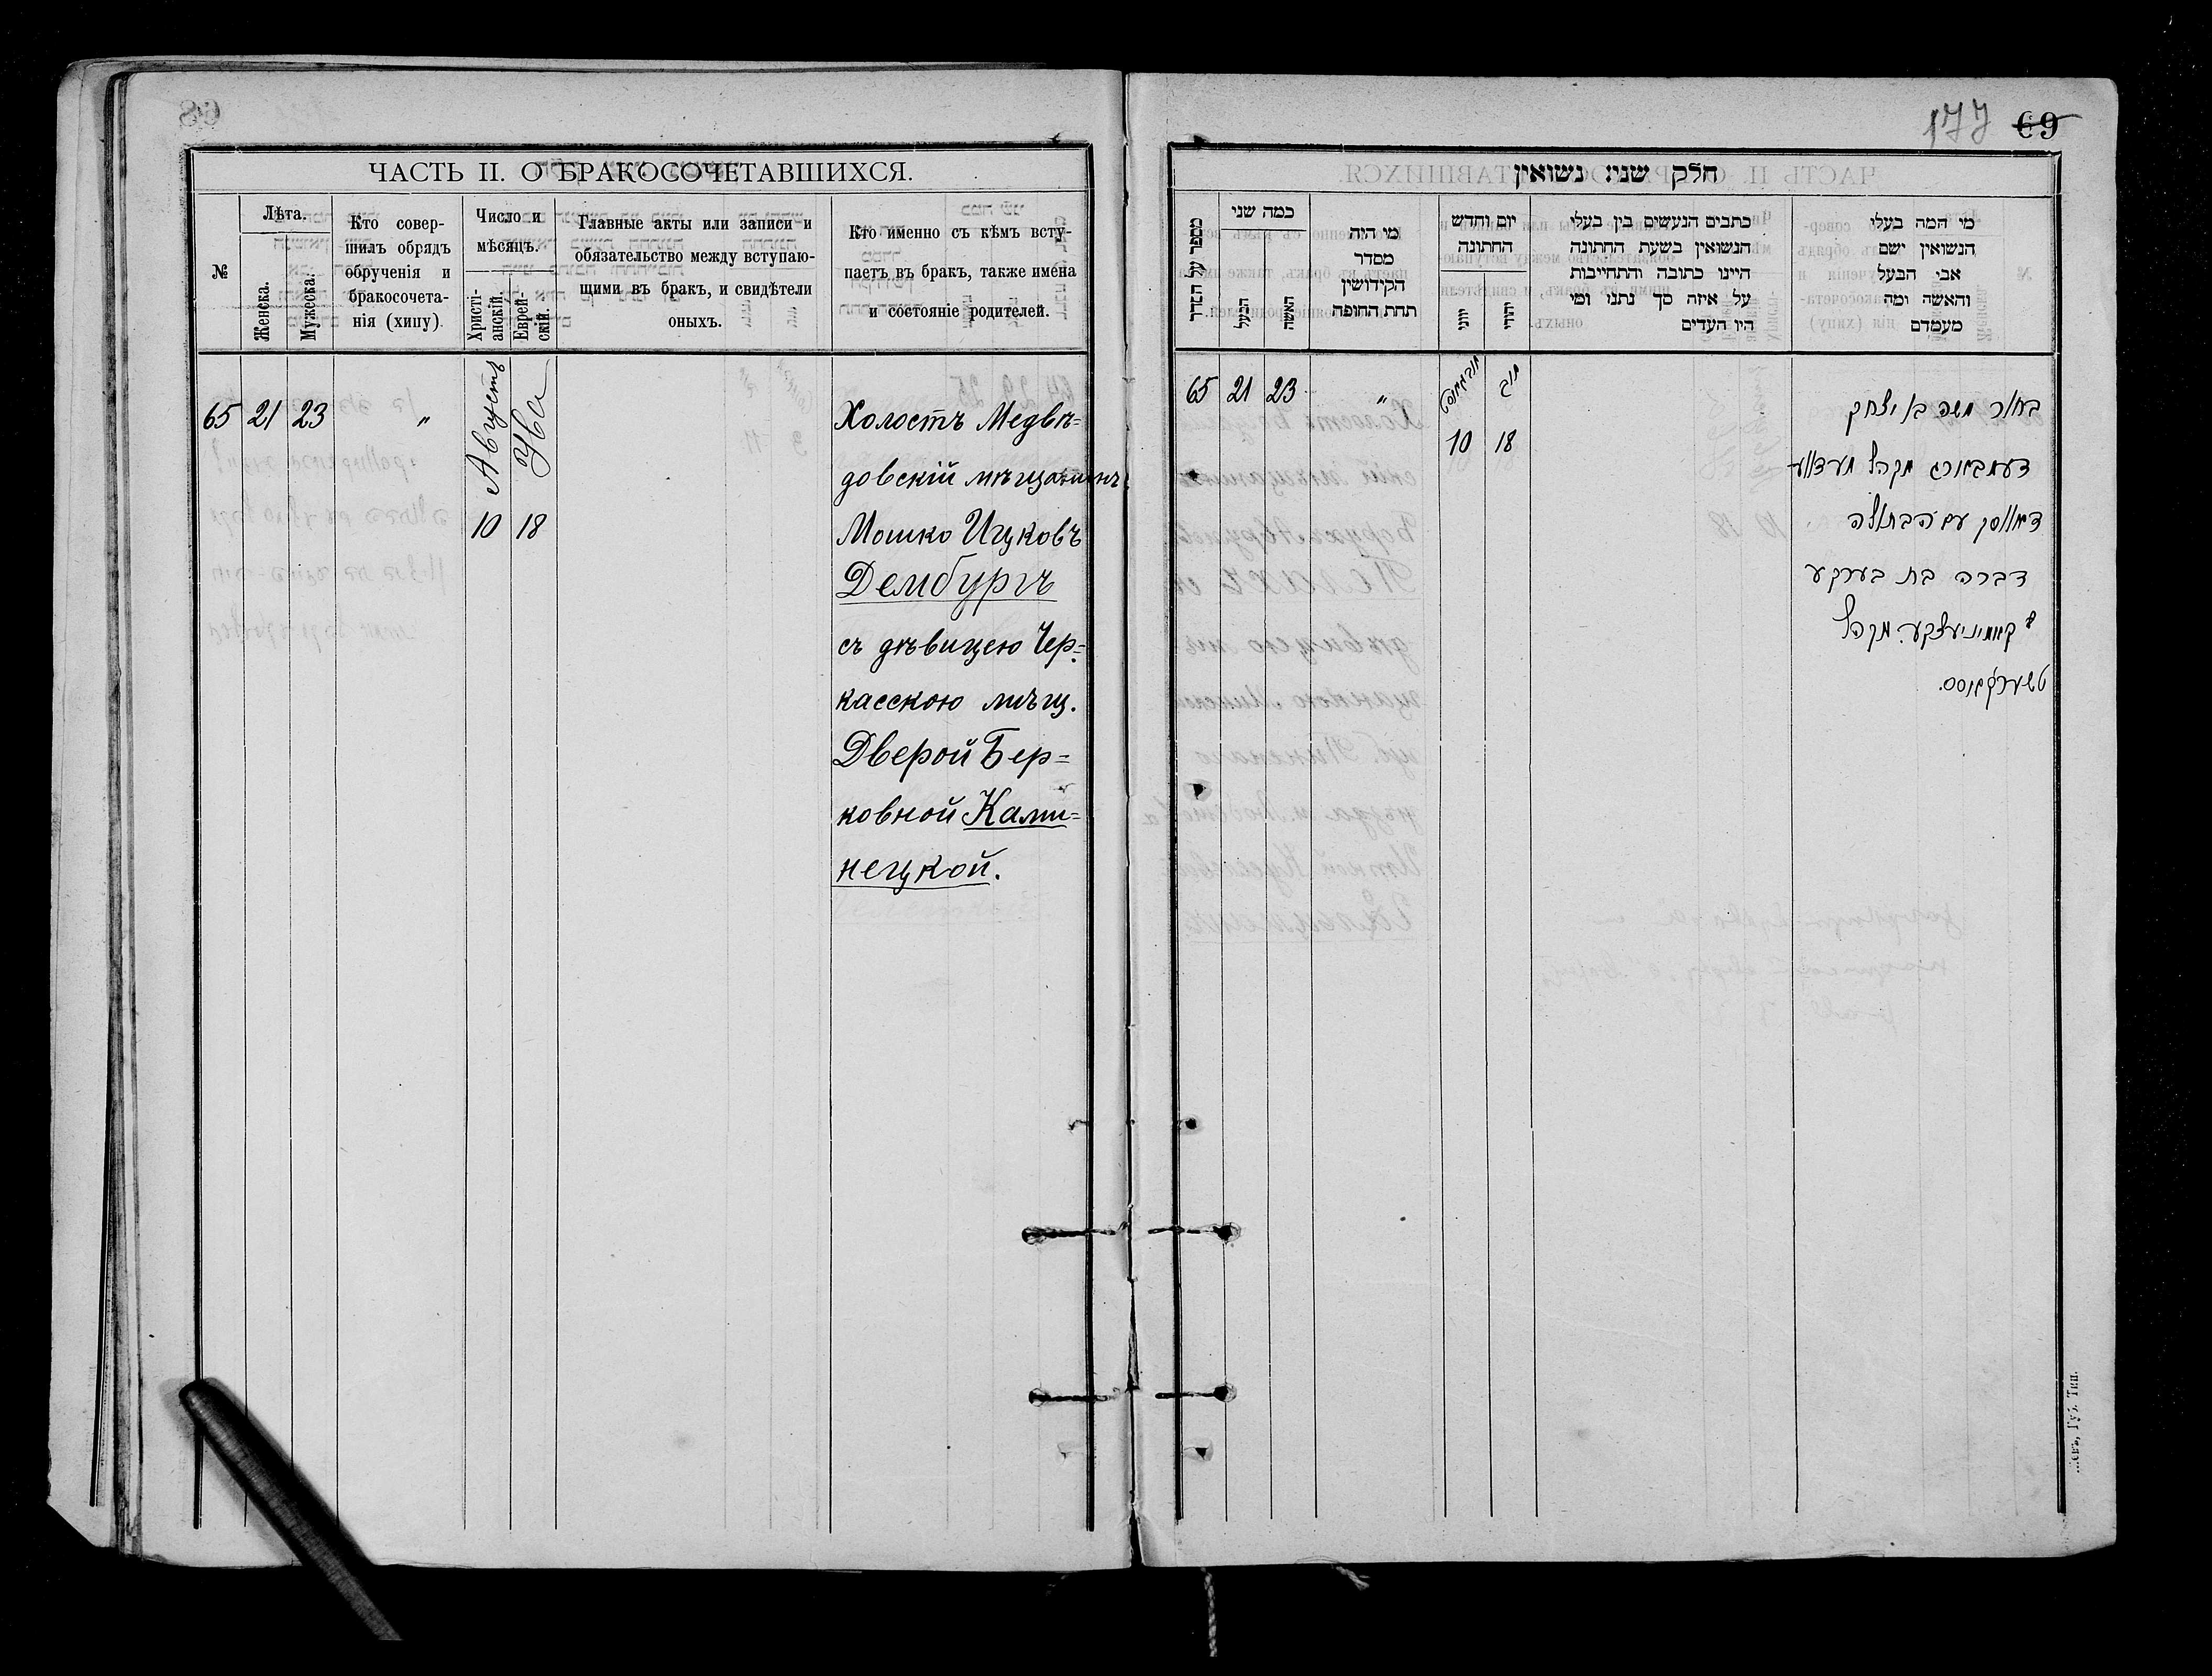 ЧАСТЬ II. О БРАКОСОЧЕТАВШИХСЯ.
№
Лѣта.
Женска.
Мужеска.
Кто совер-
шилъ обрядъ
обрученія и
бракосочета-
нія (хипу)
Число и
мѣсяцъ.
Христі-
анскій.
Еврей-
скій.
Главные акты или записи и
обязательство между вступаю-
щими въ бракъ, и свидѣтели
оныхъ.
Кто именно съ кѣмъ всту-
паетъ въ бракъ, также имена
и состояніе родителей.
65 21 23 "
Августъ
10
Ува
18
Холостъ Медвѣ=
довскій мѣщанинъ
Мошко Ицковъ
Дембургъ
съ дѣвицею Чер=
касскою мѣщ.
Дверой Бер=
ковной Ками=
нецкой.
177 69
חלק שני: נשואין
מספר על הסדר
כמה שני
הבעל
האשה
מי היה
מסדר
הקידושין
תחת החופה
יום וחדש
החתונה
יוני
יהודי
כתבים הנעשים בין בעלי
הנשואין בשעת החתונה
היינו כתובה והתחייבות
על איזה סך נתנו ומי
היו העדים
מי המה בעלי
הנשואין ישם
אבי הבעל
והאשה ומה
מעמדם
65 21 23 "
אבגוסט
10
אב
18
בחור משה בן יצחק
דעמבורג מקהל
עם הבתולה
דברה בת בערקע
קאמיניעצקע מקהל
טשערקאסס.